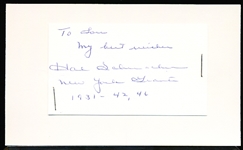 To
My best wishes
Hal Schumacher
New York Giants
1931-42, 46